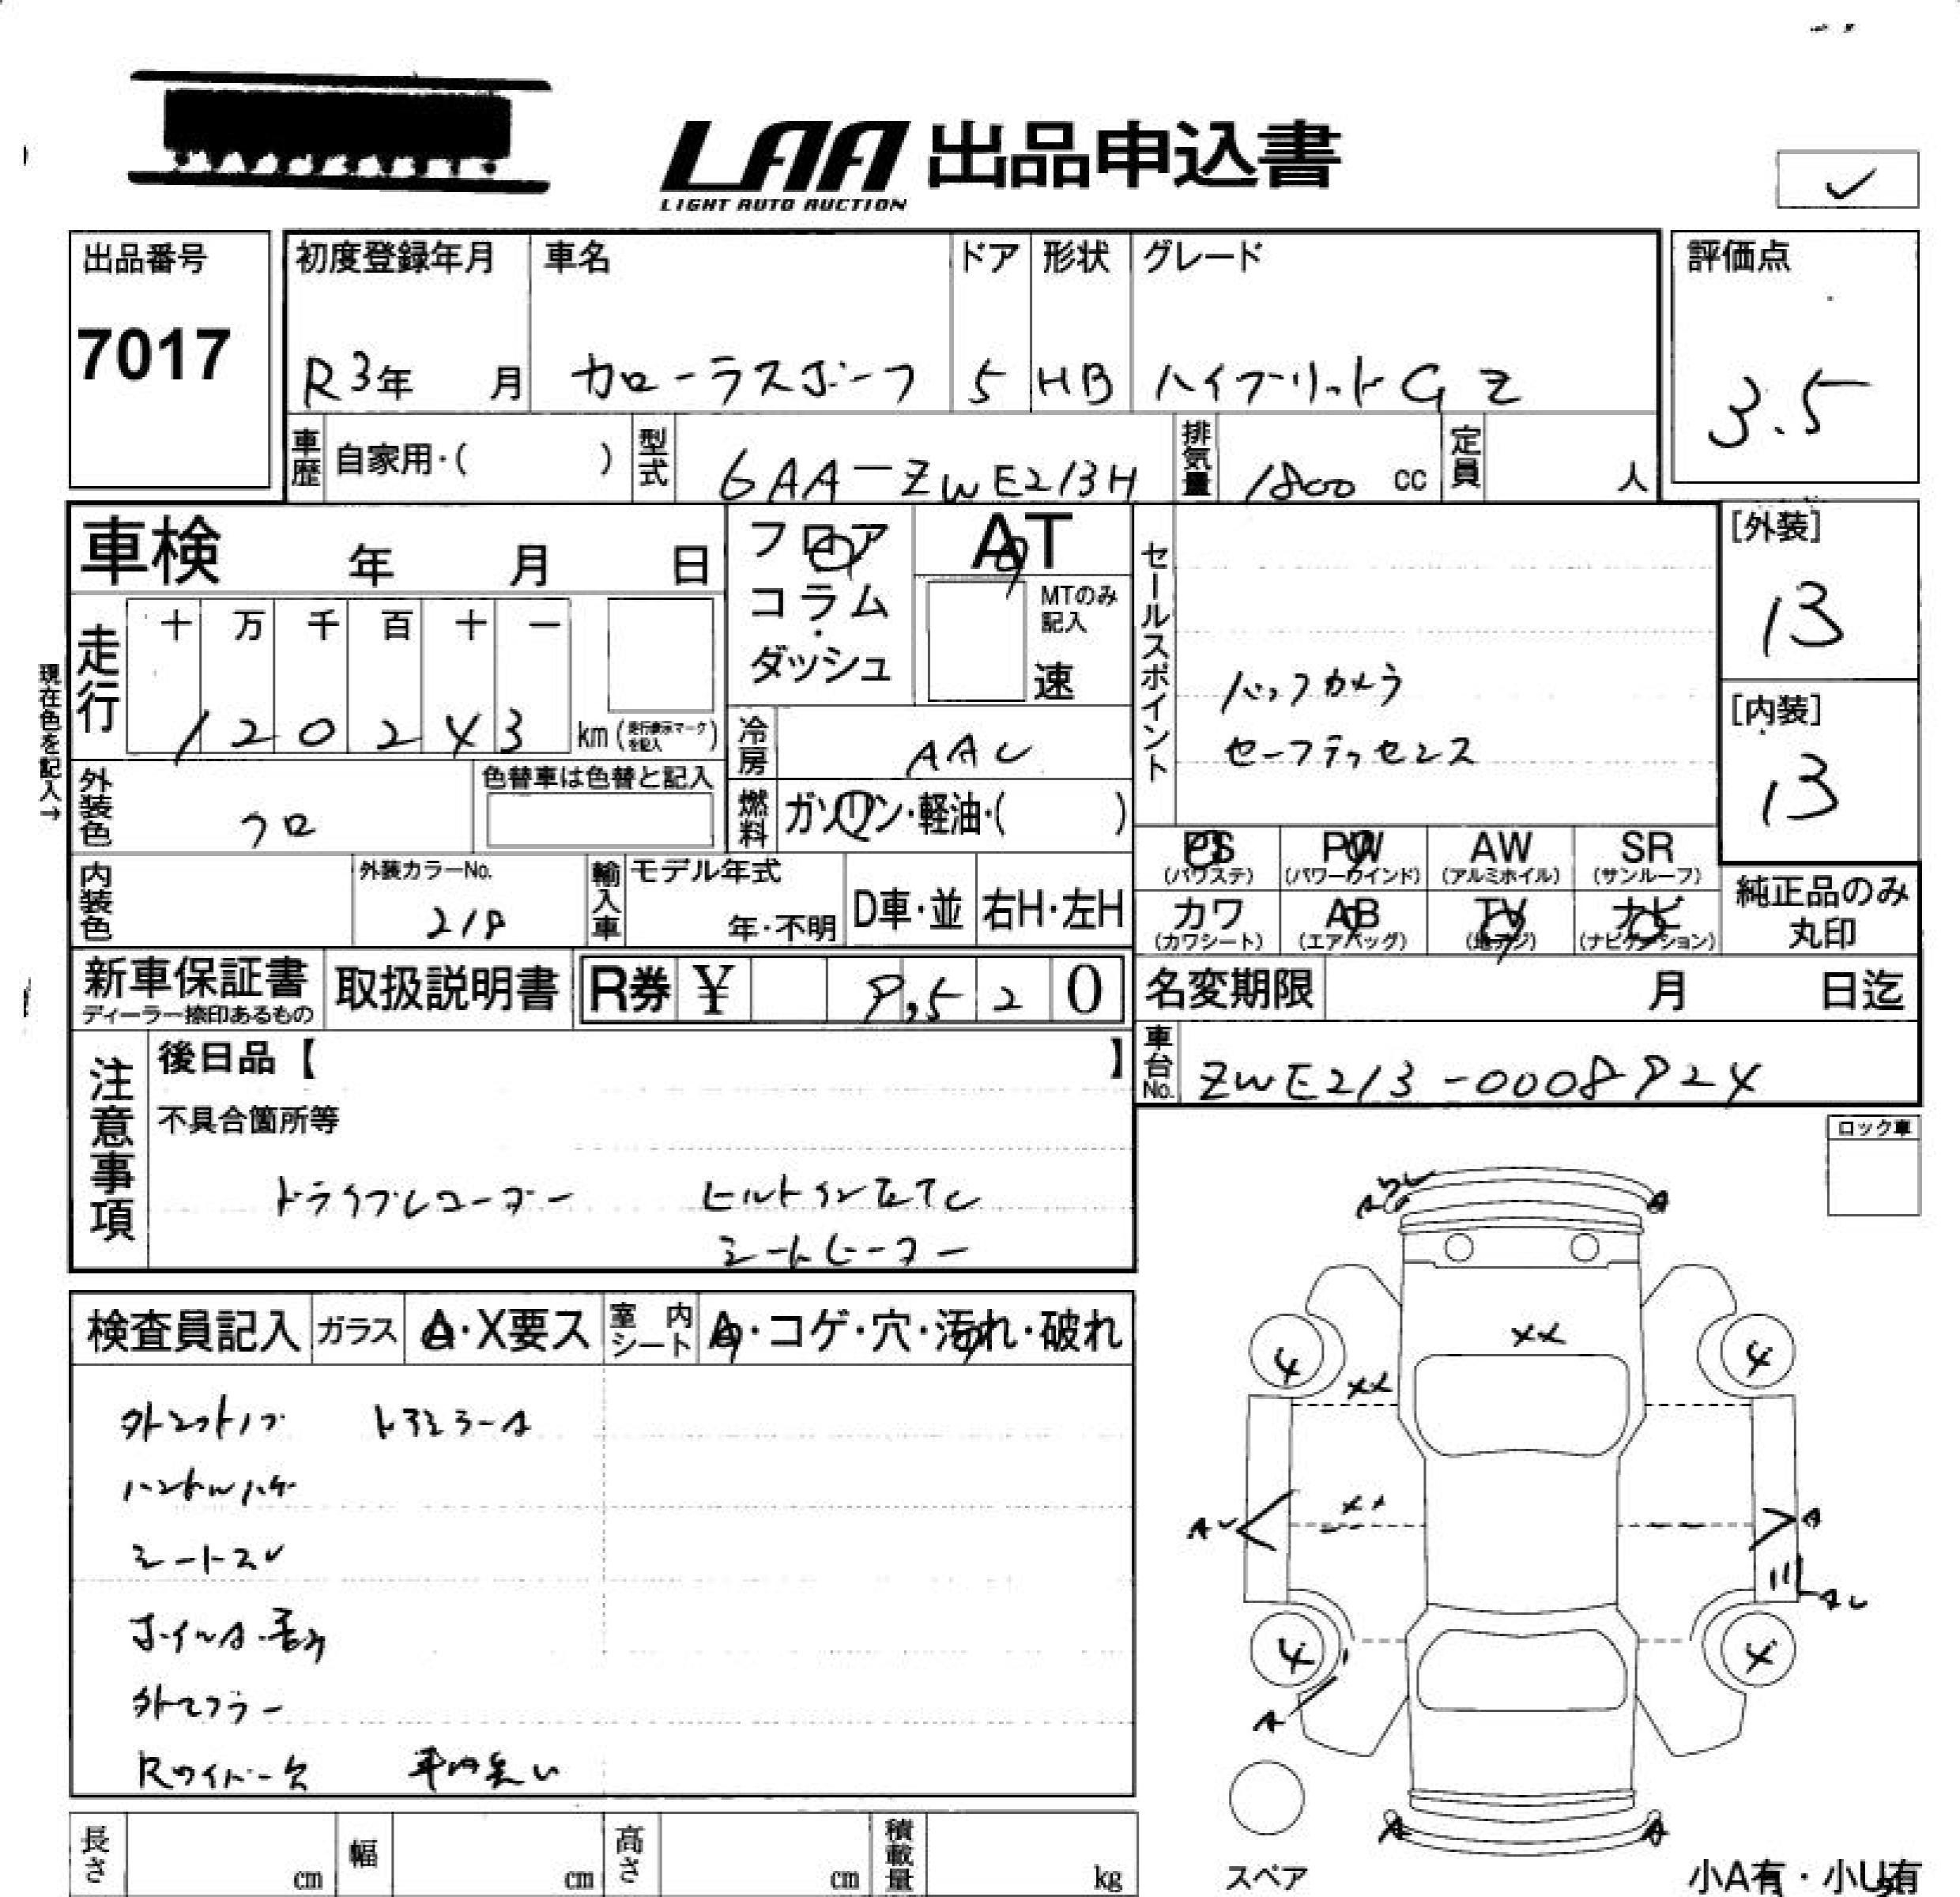 LAA 出品申込書
LIGHT AUTO AUCTION
✓
出品番号
7017
初度登録年月
R3年 月
車名
カローラスポーツ
ドア
5
形状
HB
グレード
ハイブリットGZ
評価点
3.5
車歴 自家用・( )
型式 6AA-ZWE213H
排気量 1800 cc
定員 人
車検 年 月 日
フロア
コラム
・
ダッシュ
AT
MTのみ記入
速
セールスポイント
バックカメラ
セーフティセンス
[外装]
13
[内装]
13
現在色を記入→
走行
十 万 千 百 十 一
1 2 0 2 4 3 km (走行表示マークを記入)
冷房 AAC
燃料 ガソリン・軽油・( )
外装色 クロ
色替車は色替と記入
内装色
外装カラーNo.
218
輸入車
モデル年式
年・不明
D車・並
右H・左H
PS
(パワステ)
PW
(パワーウインド)
AW
(アルミホイル)
SR
(サンルーフ)
カワ
(カワシート)
AB
(エアバッグ)
TV
(地デジ)
ナビ
(ナビゲーション)
純正品のみ
丸印
新車保証書
ディーラー捺印あるもの
取扱説明書
R券 ¥ 9,520
名変期限 月 日迄
車台No. ZWE213-0008924
注意事項
後日品【 】
不具合箇所等
ドライブレコーダー
シートヒーター
ロック車
検査員記入
ガラス A・X要ス
室内シート A・コゲ・穴・汚れ・破れ
ドアミラーA
ハンドルハゲ
シートスレ
外マフラー
Rワイパー欠
A
A
XX
4
4
XX
XX
A
A
4
4
A
A
A
スペア
小A有・小U有
長さ cm
幅 cm
高さ cm
積載量 kg